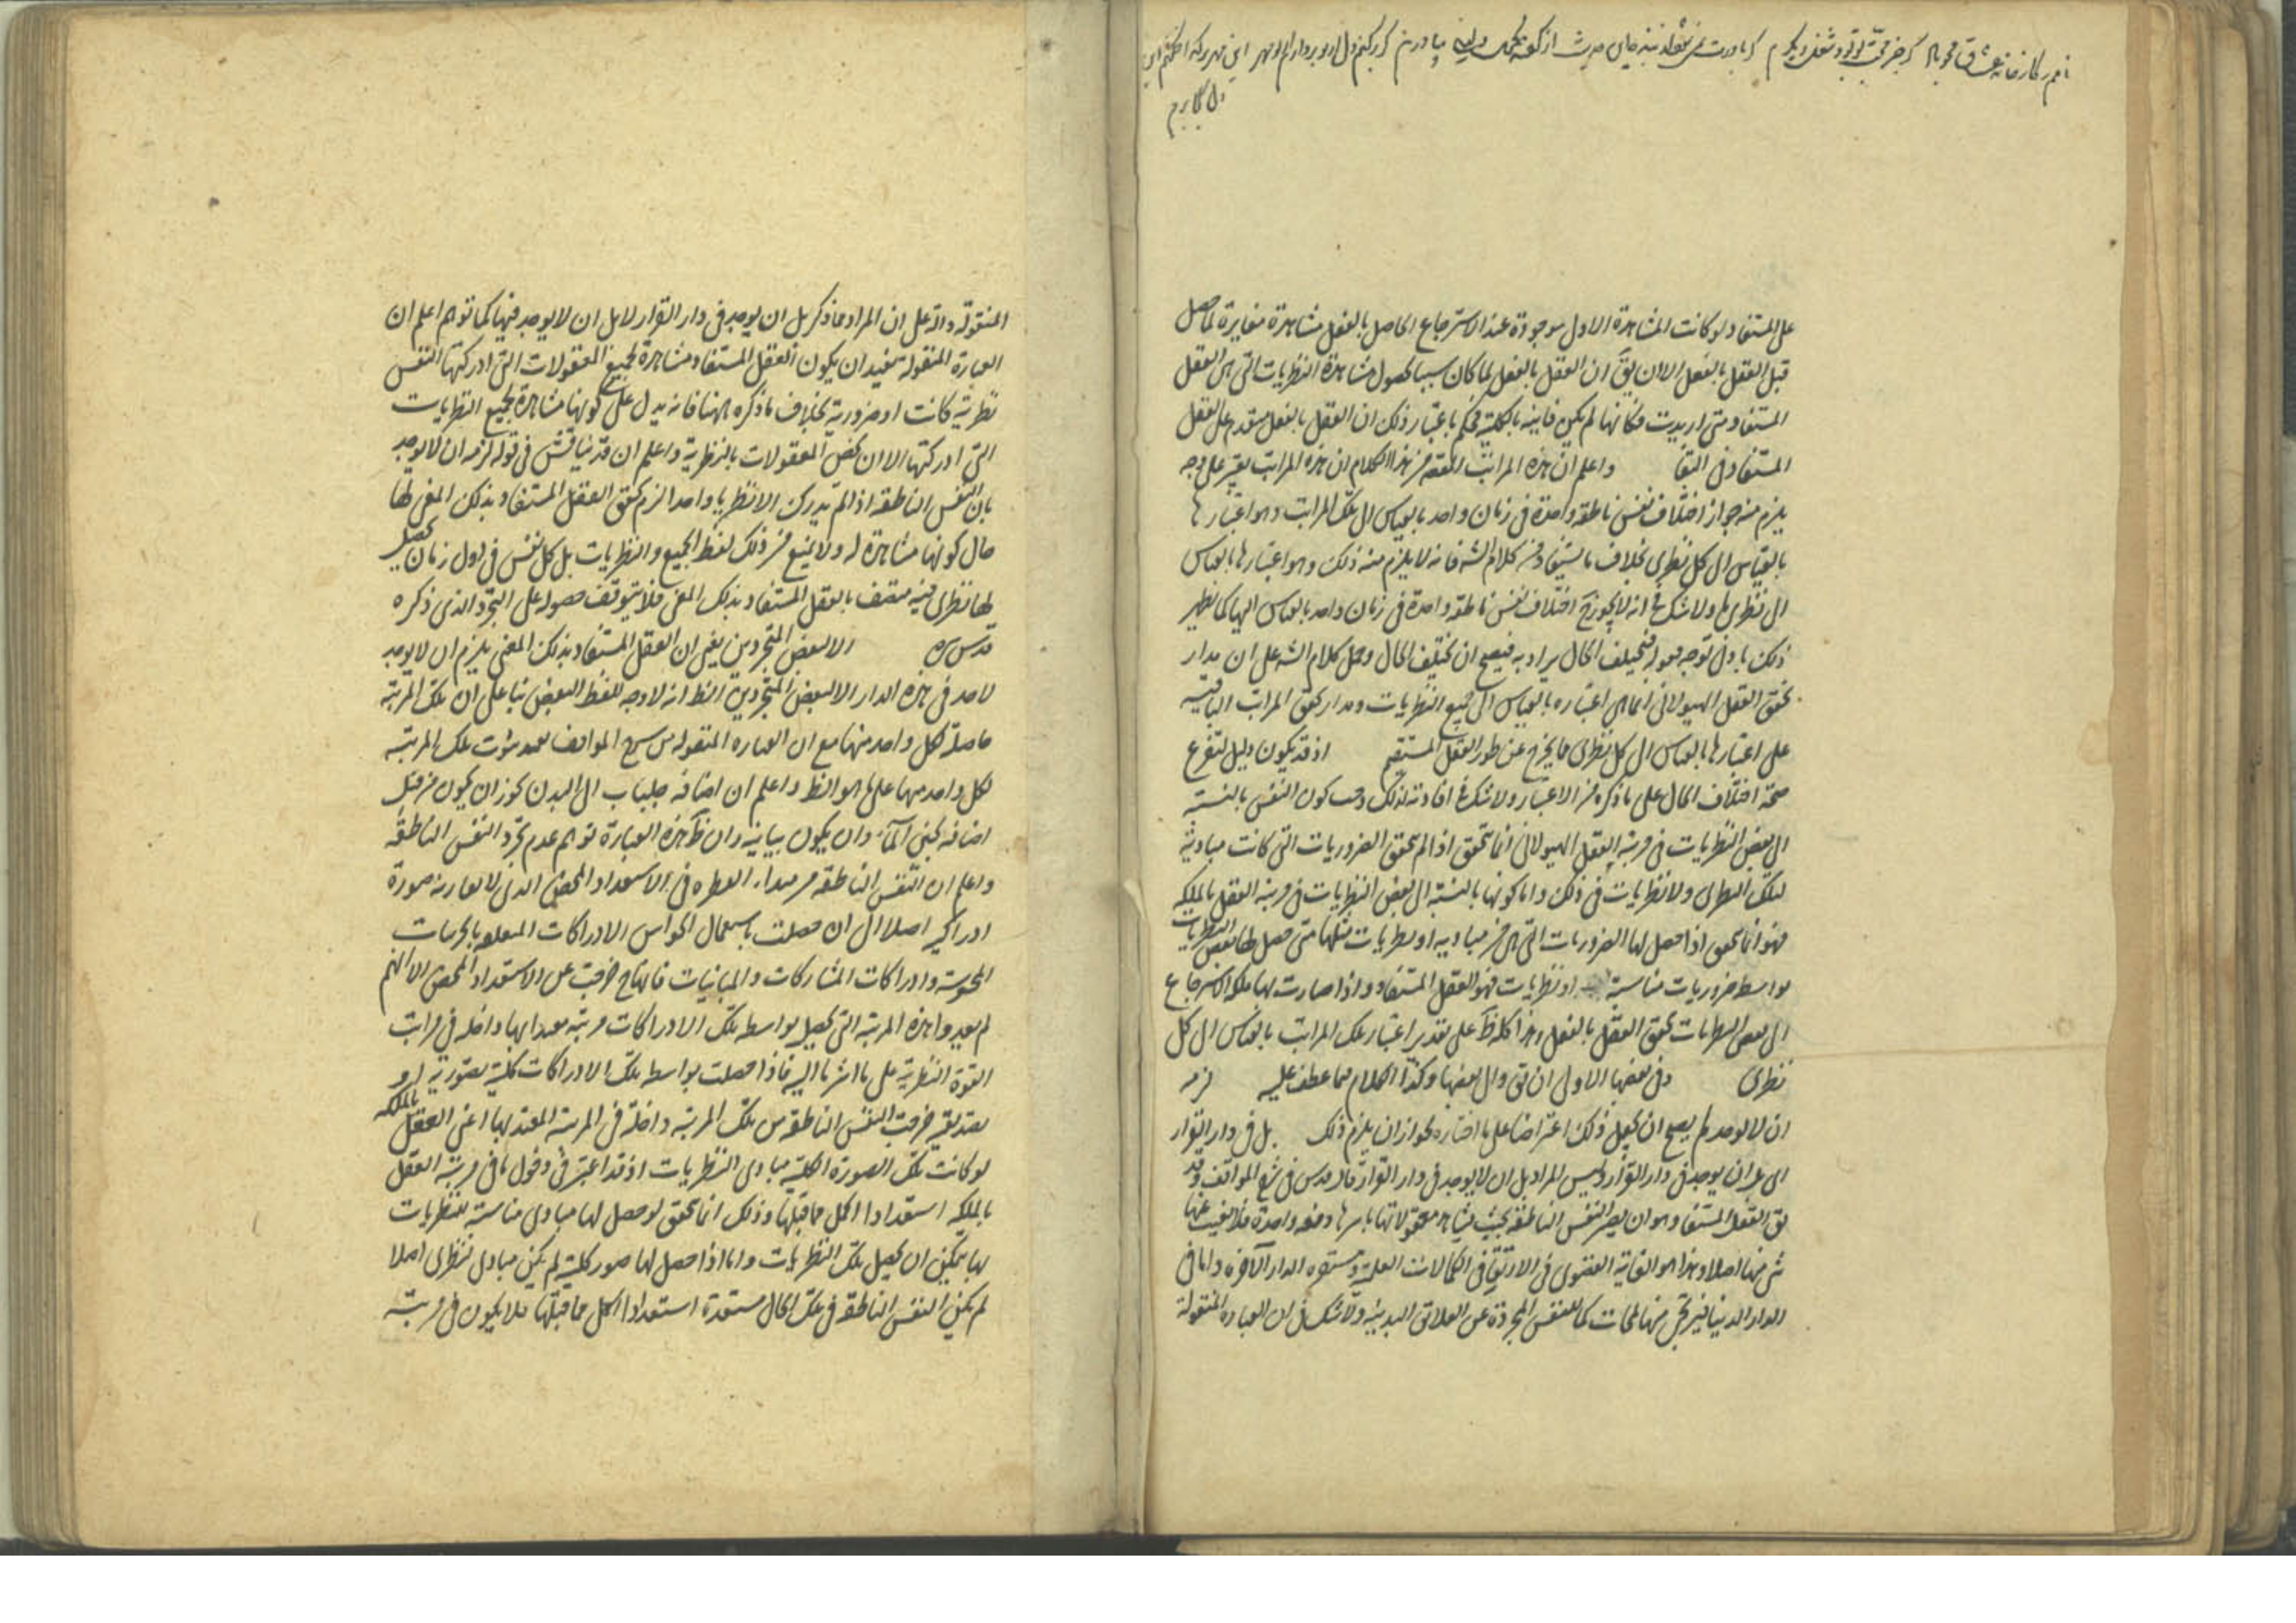 على المستفاد لو كانت المشاهدة الاول موجودة عند الاسترجاع الحاصل بالفعل مشاهدة مغايرة لما حصل
قبل العقل بالفعل الا ان يق ان العقل بالفعل لما كان سببا لحصول مشاهدة النظريات التى هى العقل
المستفاد متى اريدت فكانها لم يكن فانية بالكلية فحكم باعتبار ذلك ان العقل بالفعل متقدم على العقل
المستفاد فى البقا واعلم ان هذه المراتب المقصود من هذا الكلام ان هذه المراتب يعتبر على وجه
يلزم منه جواز اختلاف نفس ناطقة واحدة فى زمان واحد بالقياس الى تلك المراتب وهو اعتبارها
بالقياس الى كل نظرى بخلاف ما يستفاد من كلام الشه فانه لا يلزم منه ذلك وهو اعتبارها بالقياس
الى النظرى ولا شك فى انه لا يجوز اختلاف نفس ناطقة واحدة فى زمان واحد بالقياس اليها كما يظهر
ذلك بادنى توجه فقوله فيختلف الحال يراد به فيصح ان يختلف الحال وحمل كلام الشه على ان مدار
تحقق العقل الهيولانى انما هى اعتباره بالقياس الى جميع النظريات ومدار تحقق المراتب الباقية
على اعتبارها بالقياس الى كل نظرى مما يخرج عن طور العقل المستقيم اذ قد يكون دليل لتفرع
صحة اختلاف الحال على ما ذكره من الاعتبار ولا شك فى افادته لذلك وحسب كون النفس بالنسبة
الى بعض النظريات فى مرتبة العقل الهيولانى انما يتحقق اذا لم يتحقق الضروريات التى كانت مبادية
لتلك النظرى ولا نظريات فى ذلك واما كونها بالنسبة الى بعض النظريات فى مرتبة العقل بالملكه
فهو انما يتحقق اذا حصل لها الضروريات التى هى من مباديه او نظريات مثلها متى حصل لها بعض النظريات
بواسطة ضروريات مناسبة او نظريات فهو العقل المستفاد واذا صارت لها ملكة الاسترجاع
الى بعض النظريات تحقق العقل بالفعل وهذا كله ظ على تقدير اعتبار تلك المراتب بالقياس الى كل
نظرى وفى بعضها الاولى ان يق والى بعضها وكذا الكلام فيما عطف عليه لزمه
ان لا يوجد لم يصح ان يجعل ذلك اعتراضا على ما اختاره لجواز ان يلزم ذلك بل فى دار القرار
اى بل ان يوجد فى دار القرار وليس المراد بل ان لا يوجد فى دار القرار قال قدس فى شرح المواقف وقد
يق العقل المستفاد هو ان يصير النفس الناطقة بحيث يشاهد معقولاتها باسرها دفعة واحدة فلا يغيب عنها
شى منها اصلا وهذا هو الغاية القصوى فى الارتقا فى الكمالات العلمية ومستقره الدار الاخرة واما فى
الدار الدنيا فيرتجى منها لمحات كما للنفس المجردة عن العلائق البدنية ولا شك فى ان العبارة المنقولة
المنقولة دالة على ان المراد مما ذكر بل ان يوجد فى دار القرار لا بل ان لا يوجد فيها كما توهم اعلم ان
العبارة المنقولة تفيد ان يكون العقل المستفاد مشاهدة لجميع المعقولات التى ادركتها النفس
نظرية كانت او ضرورية بخلاف ما ذكره ههنا فانه يدل على كونها مشاهدة لجميع النظريات
التى ادركتها الا ان يخص المعقولات بالنظرية واعلم ان قد يناقش فى قوله لزمه ان لا يوجد
بان النفس الناطقة اذا لم تدرك الا نظريا واحدا لزم تحقق العقل المستفاد بذلك المعنى لها
حال كونها مشاهدة له ولا يمنع من ذلك لفظ الجميع والنظريات بل كل نفس فى اول زمان يحصل
لها نظرى فيه متصف بالعقل المستفاد بذلك المعنى فلا يتوقف حصوله على التجرد الذى ذكره
قدس سره الا لبعض المتجردين يعنى ان العقل المستفاد بذلك المعنى يلزم ان لا يوجد
لاحد فى هذه الدار الا لبعض المتجردين الظ انه لا وجه للفظ البعض بناء على ان تلك المرتبة
حاصلة لكل واحد منها مع ان العباره المنقوله من شرح المواقف يفيد ثبوت تلك المرتبة
لكل واحد منها على ما هو الظ واعلم ان اضافة جلباب الى البدن يجوز ان يكون من قبيل
اضافة لجين المآء وان يكون بيانية وان ظ هذه العبارة توهم عدم تجرد النفس الناطقة
واعلم ان النفس الناطقه من مبداء الفطره فى الاستعداد المحض الذى لا يقارنه صورة
ادراكية اصلا الى ان حصلت باستعمال الحواس الادراكات المتعلقه بالجزئيات
المحسوسة وادراكات المشاركات والمباينات فانها ح خرجت عن الاستعداد المحض الا انهم
لم يعدوا هذه المرتبة التى يحصل بواسطه تلك الادراكات مرتبه معتدا بها داخله فى مراتب
القوة النظرية على ما اشرنا اليه فاذا حصلت بواسطه تلك الادراكات كلية تصورية او
تصديقية خرجت النفس الناطقة من تلك المرتبة داخلة فى المرتبة المعتد بها اعنى العقل بالملكه
لو كانت تلك الصورة الكلية مبادى النظريات اذ قد اعتبر فى دخولها فى مرتبة العقل
بالملكه استعدادا اكمل مما قبلها وذلك انما يتحقق لو حصل لها مبادى مناسبة للنظريات
بها يمكن ان يحصل تلك النظريات واما اذا حصل لها صور كلية لم يكن مبادى نظرى اصلا
لم يكن النفس الناطقة فى تلك الحال مستعدة استعدادا اكمل مما قبلها فلا يكون فى مرتبة